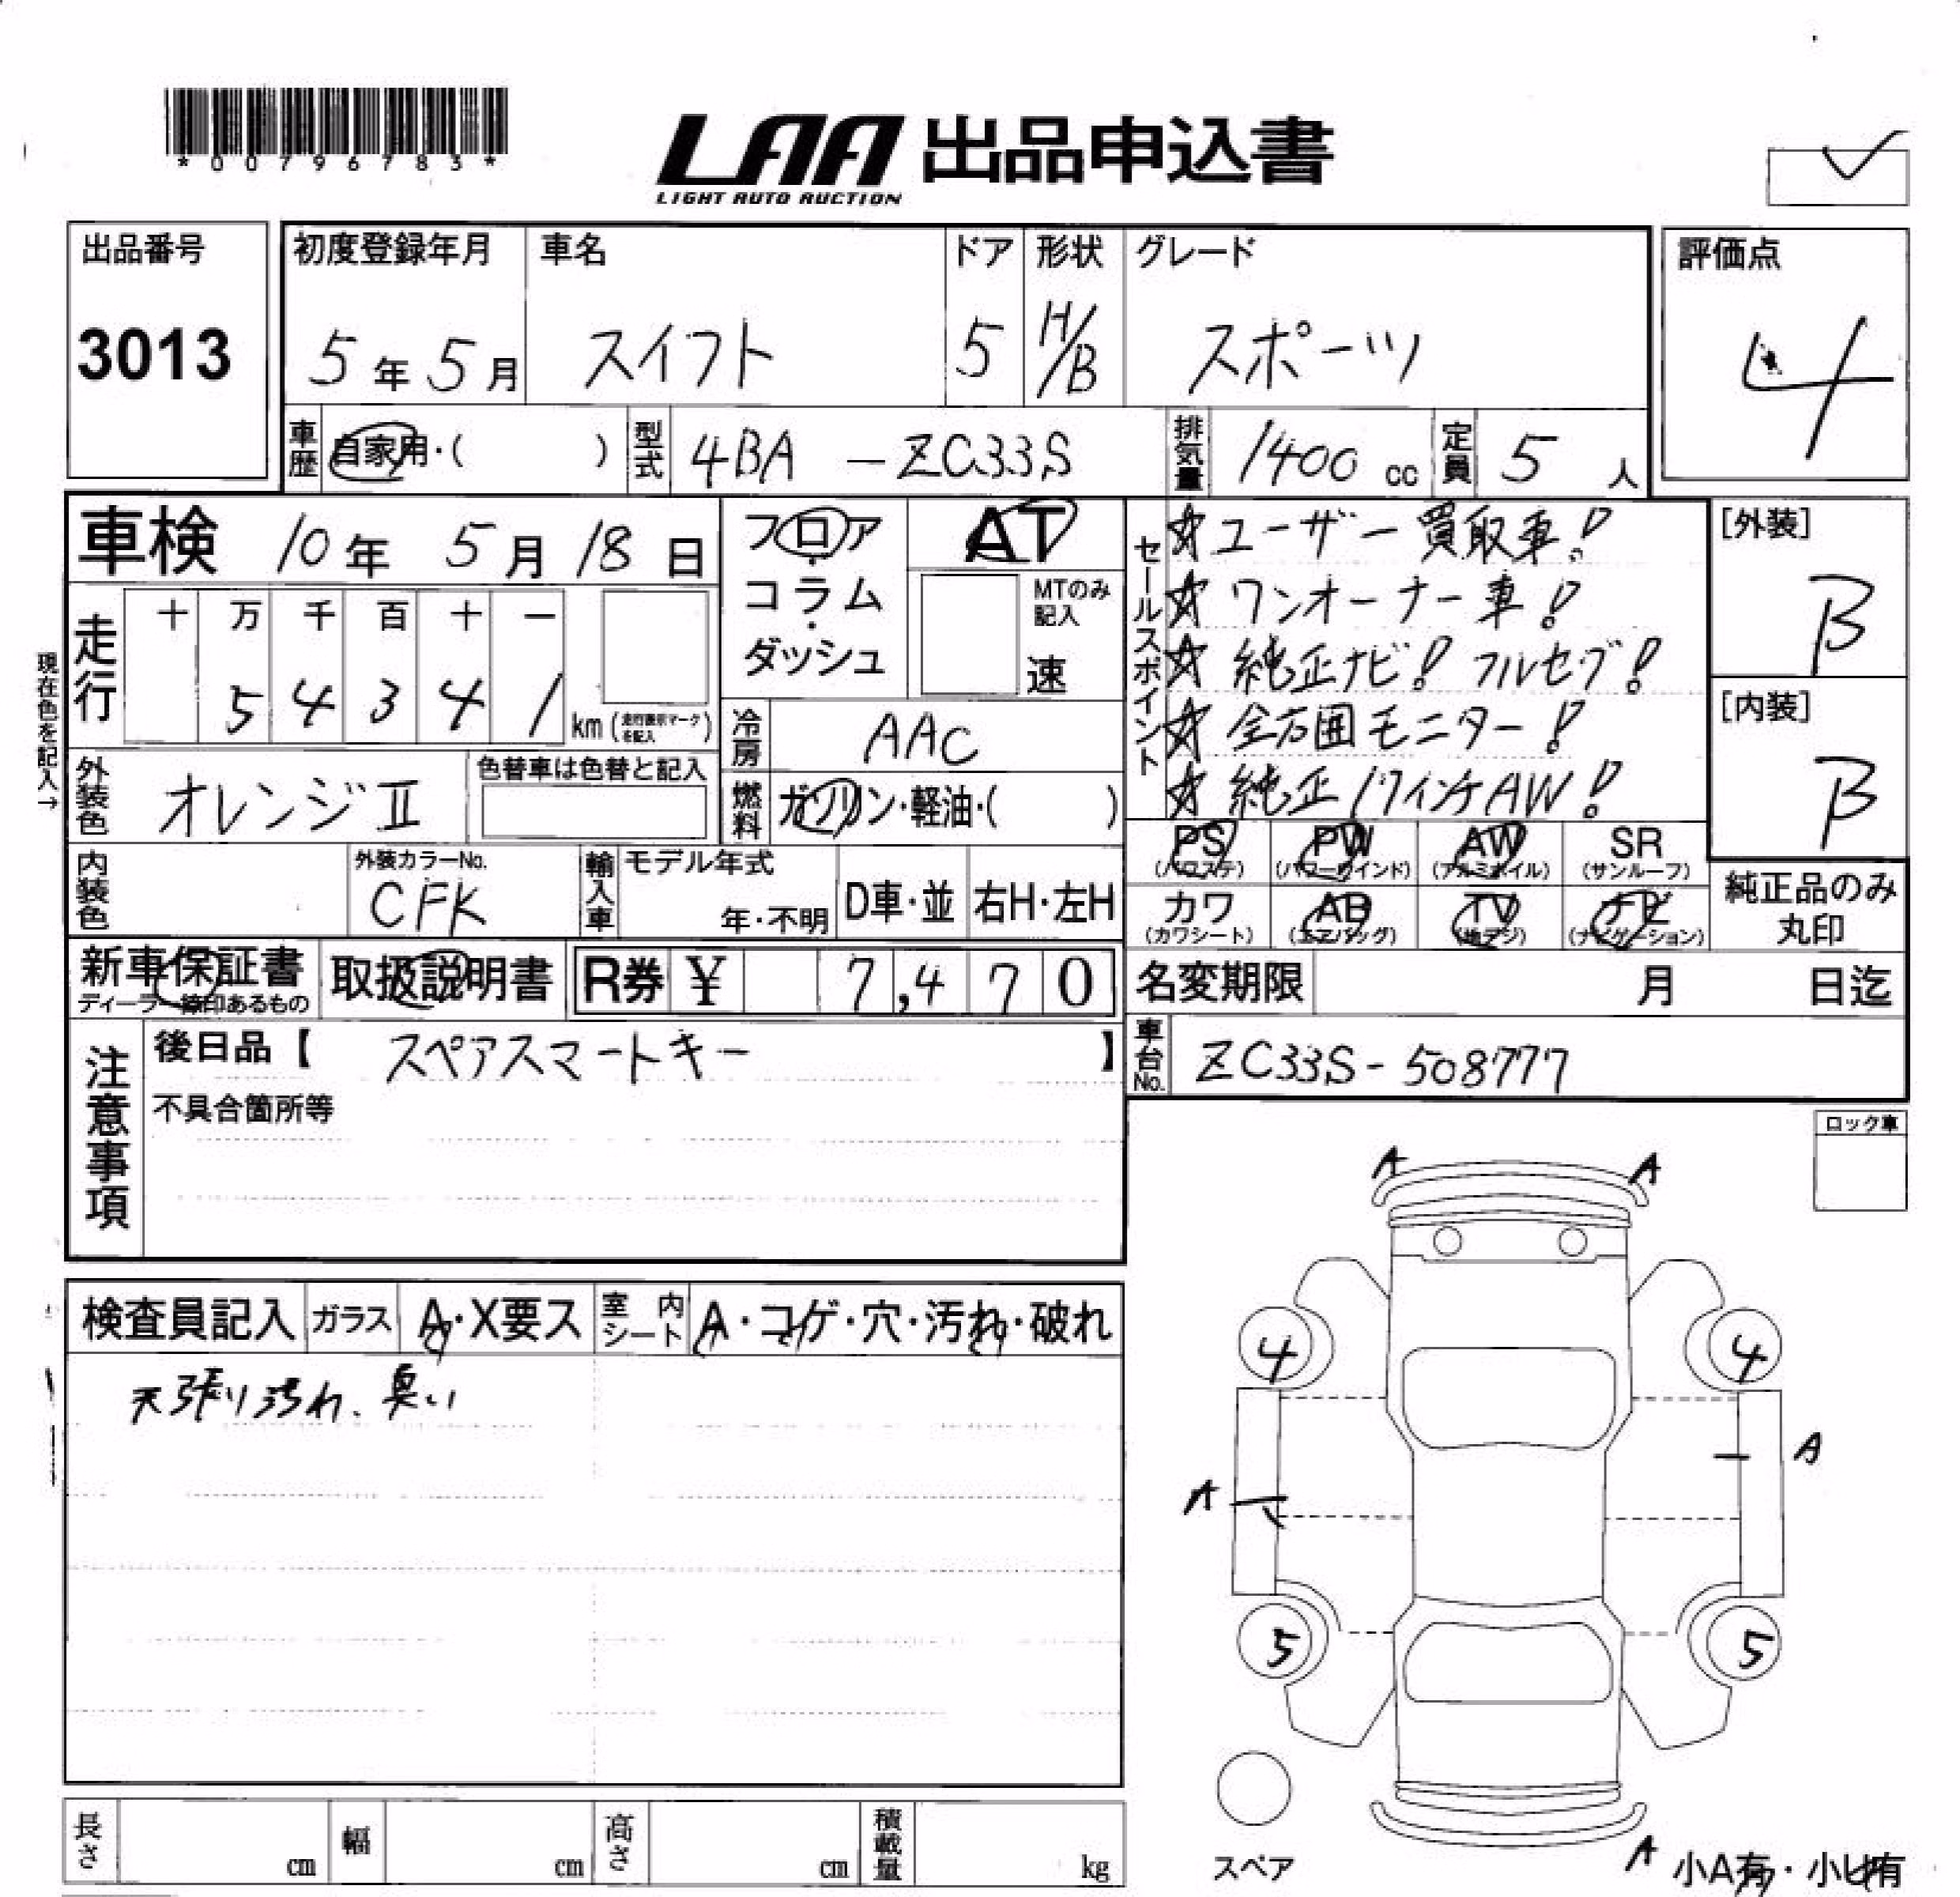 *00796783*
LAA 出品申込書
LIGHT AUTO AUCTION
出品番号
3013
初度登録年月
5年5月
車名
スイフト
ドア
5
形状
H/B
グレード
スポーツ
評価点
4
車歴
自家用・( )
型式
4BA-ZC33S
排気量
1400 cc
定員
5人
車検 10年 5月 18日
現在色を記入→
走行
十 万 千 百 十 一
5 4 3 4 1
km (走行表示マークを記入)
フロア・コラム・ダッシュ
AT
MTのみ記入
速
冷房
AAC
燃料
ガソリン・軽油・( )
外装色
オレンジⅡ
色替車は色替と記入
内装色
外装カラーNo.
CFK
輸入車
モデル年式
年・不明
D車・並
右H・左H
セールスポイント
☆ユーザー買取車!
☆ワンオーナー車!
☆純正ナビ! フルセグ!
☆全方囲モニター!
☆純正17インチAW!
[外装]
B
[内装]
B
PS
(パワステ)
PW
(パワーウインド)
AW
(アルミホイル)
SR
(サンルーフ)
カワ
(カワシート)
AB
(エアバッグ)
TV
(地デジ)
ナビ
(ナビゲーション)
純正品のみ
丸印
新車保証書
ディーラー捺印あるもの
取扱説明書
R券 ¥ 7,470
名変期限 月 日迄
車台No.
ZC33S-508777
注意事項
後日品【 スペアスマートキー 】
不具合箇所等
ロック車
検査員記入
ガラス
A・X要ス
室内シート
A・コゲ・穴・汚れ・破れ
天張り汚れ、臭い
A
A
4
4
A
A
5
5
スペア
A
小A有・小U有
長さ cm
幅 cm
高さ cm
積載量 kg